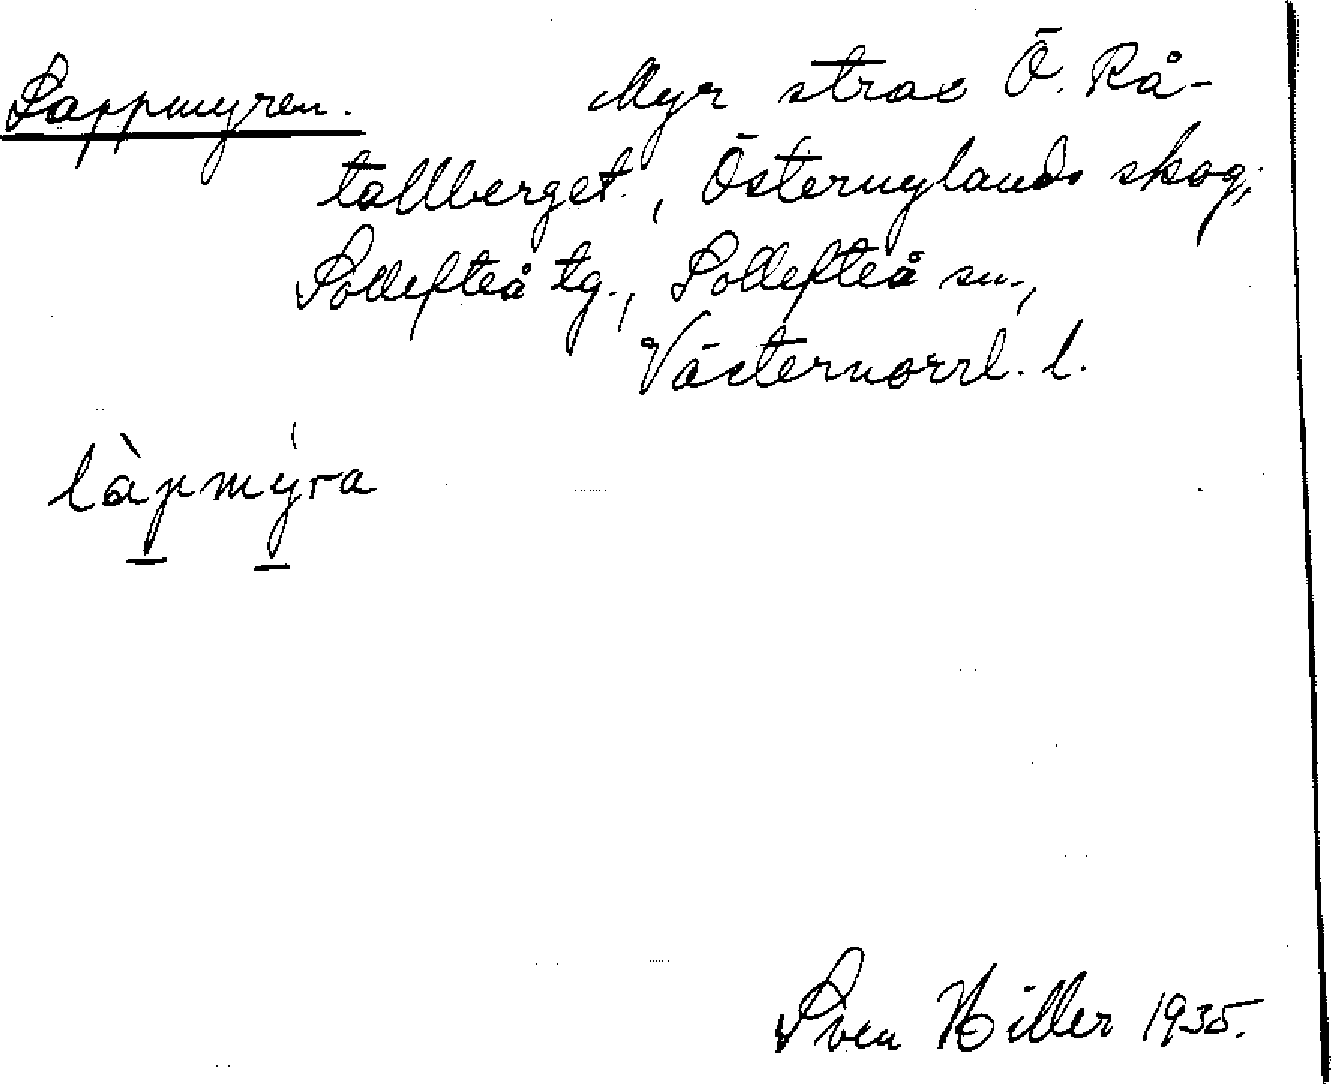 Lappmyren. Myr strax Ö. Rå-
tallberget., Östernylands skog,
Sollefteå tg., Sollefteå sn.,
Västernorrl. l.
làpmýra
Sven Hiller 1935.